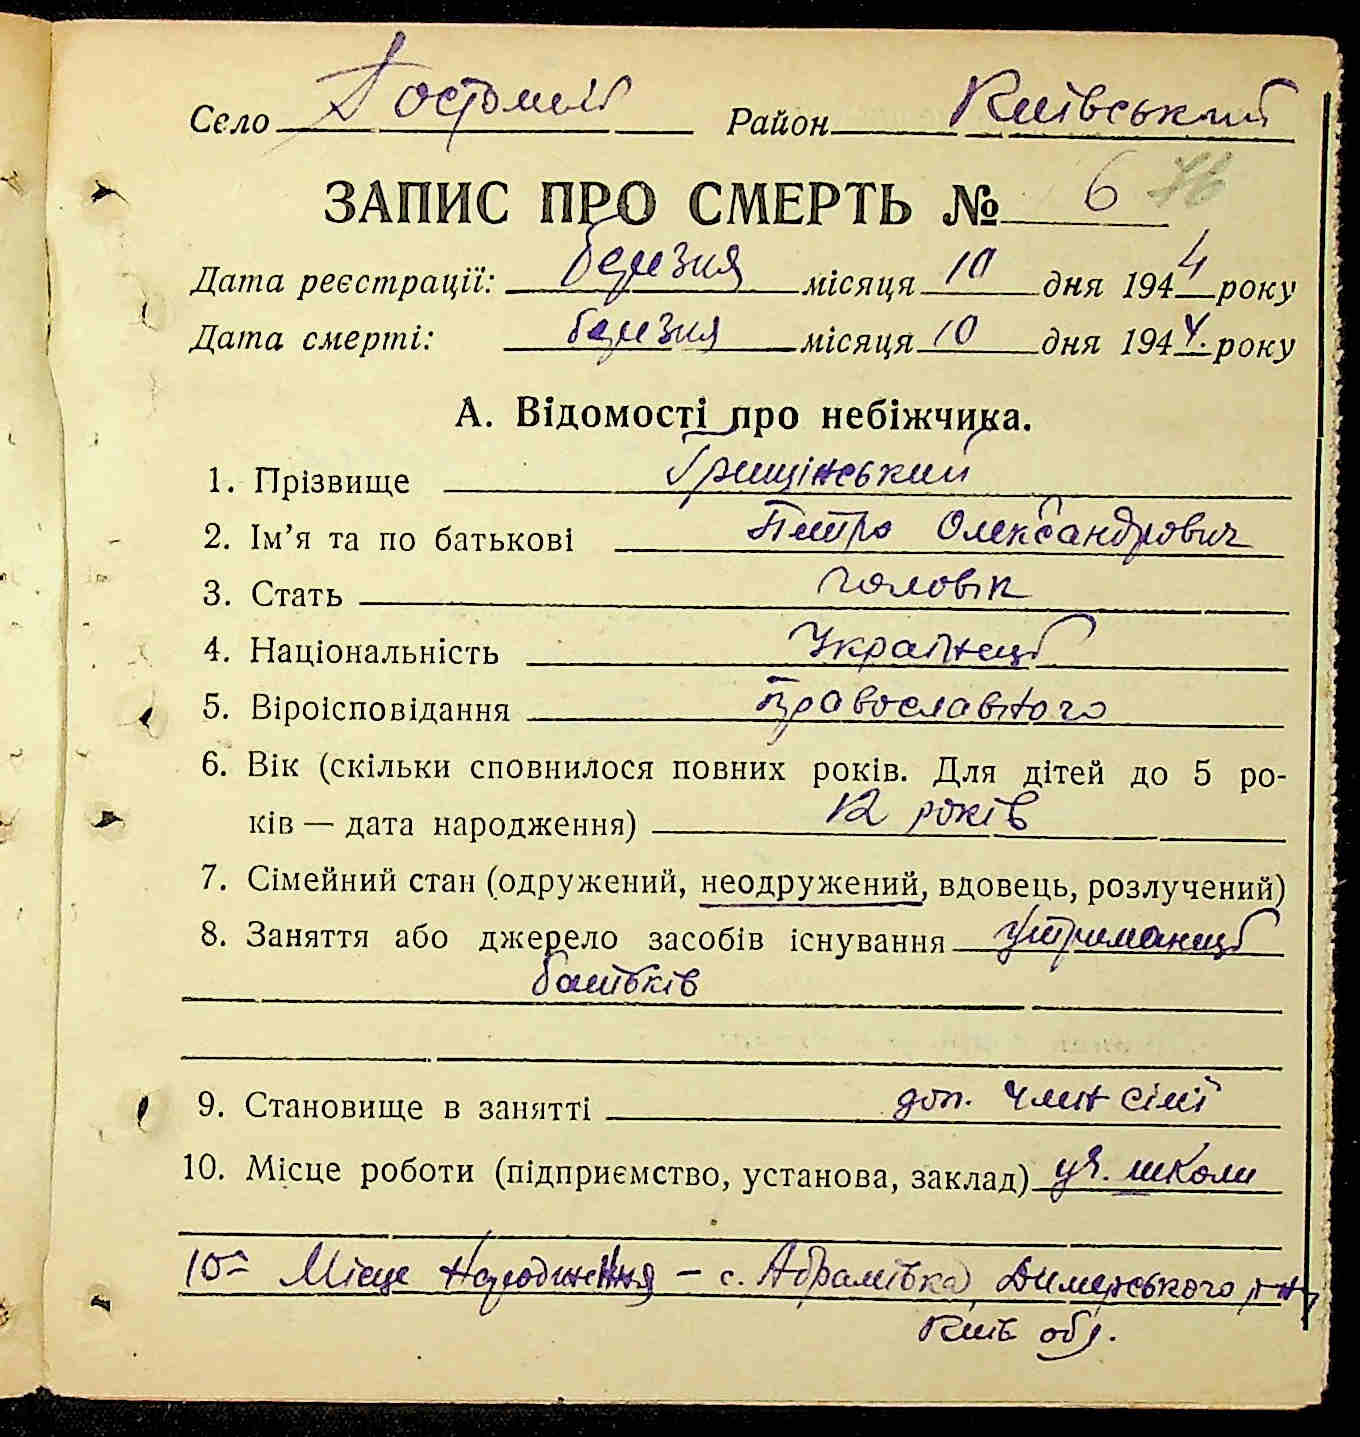 Село Гостомель Район Київський
ЗАПИС ПРО СМЕРТЬ № 6 76
Дата реєстрації: березня місяця 10 дня 1944 року
Дата смерті: березня місяця 10 дня 1944. року
А. Відомості про небіжчика.
1. Прізвище Грищінський
2. Ім’я та по батькові Петро Олександрович
3. Стать чоловік
4. Національність Українець
5. Віроісповідання православного
6. Вік (скільки сповнилося повних років. Для дітей до 5 ро-
ків — дата народження) 12 років
7. Сімейний стан (одружений, неодружений, вдовець, розлучений)
8. Заняття або джерело засобів існування утриманець
батьків
9. Становище в занятті доп. член сімї
10. Місце роботи (підприємство, установа, заклад) уч. школи
10а Місце народження – с. Абрамівка, Димерського р-ну
Київ обл.